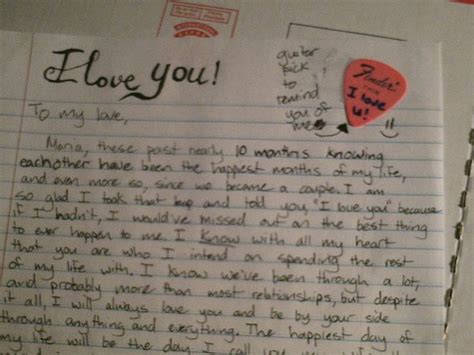 I love you!
guiter
pick
to
remind
you of
me
Fender
THIN
I love
u!
=)
To my love,
Maria, these past nearly 10 months knowing
eachother have been the happest months of my life,
and even more so, since we became a couple. I am
so glad I took that leap and told you, "I love you" because
if I hadn't, I would've missed out on the best thing
to ever happen to me. I know with all my heart
that you are who I intend on spending the rest
of my life with. I know we've been through a lot,
and probably more than most relationships, but despite
it all, I will always love you and be by your side
through anything and everything. The happiest day of
my life will be the day I call you my